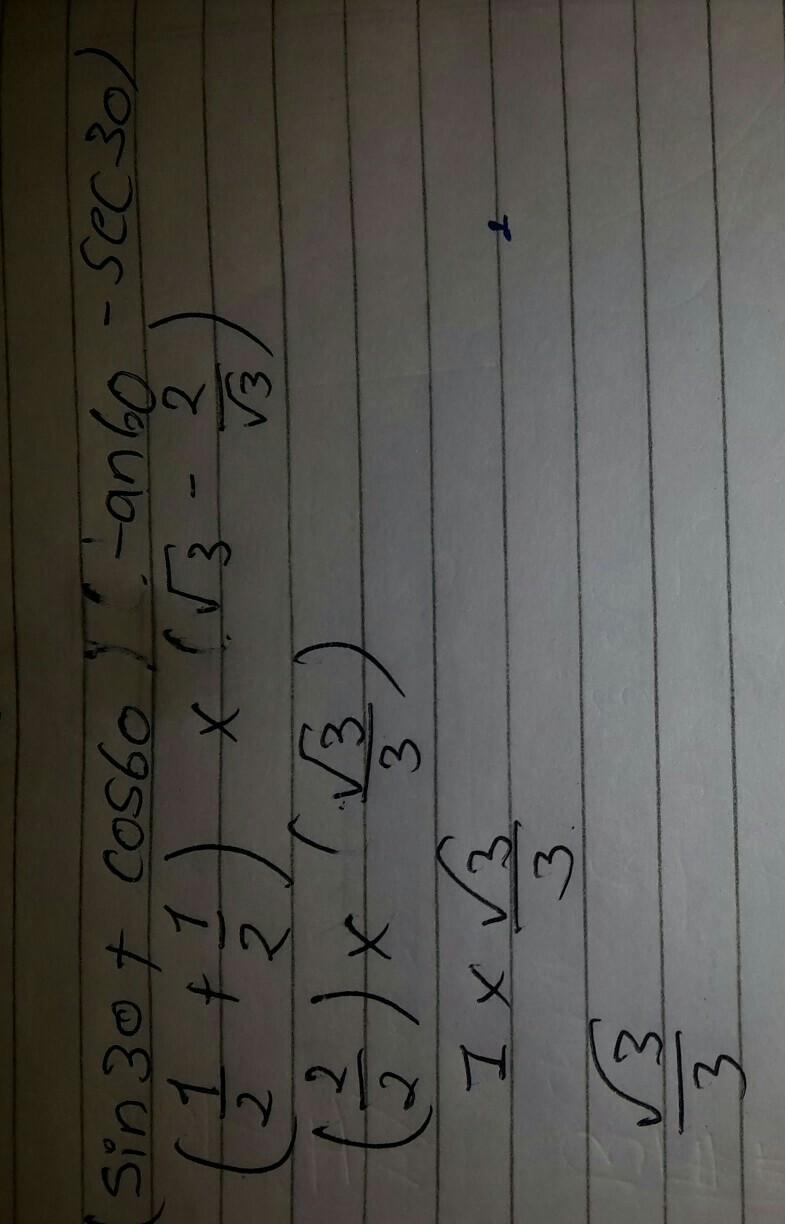 (sin30 + cos60) (tan60 - sec30)
(1/2 + 1/2) × (√3 - 2/√3)
(2/2) × (√3/3)
1 × √3/3
√3/3